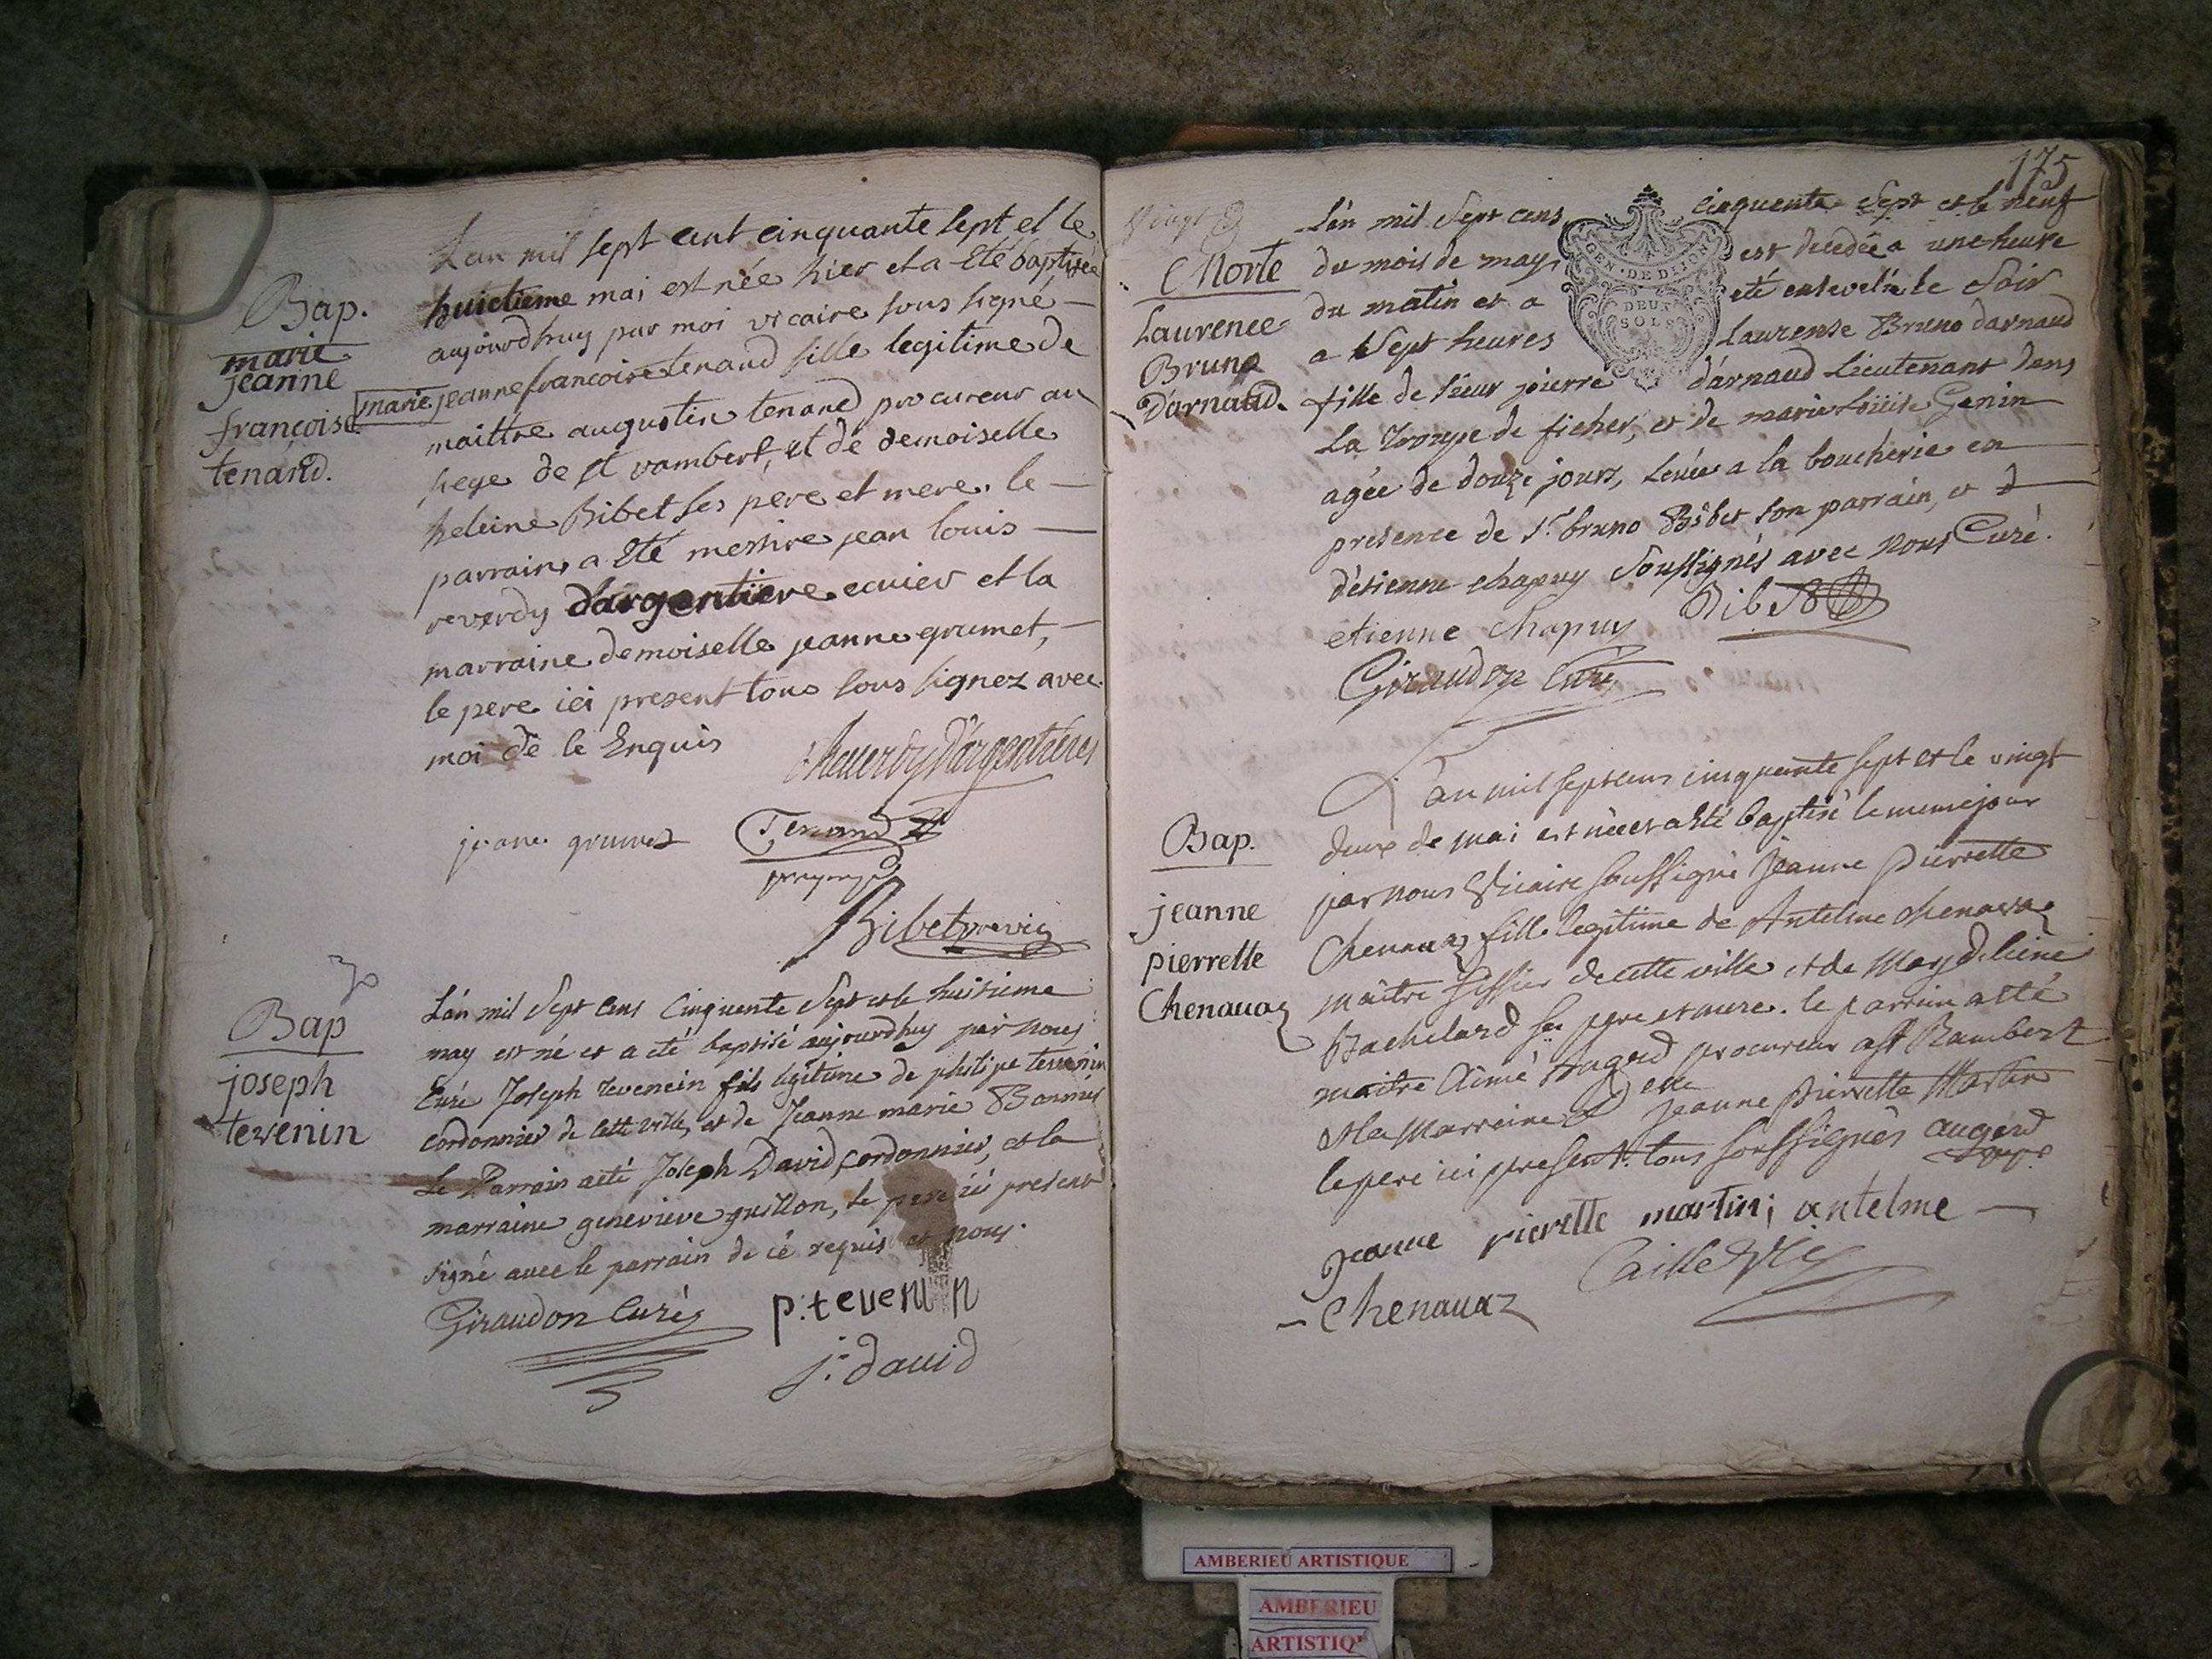 Bap.
marie
jeanne
françoise
tenand.
Lan mil sept cent cinquante sept et le
huictieme mai est née hier et a eté baptisée
aujourdhuy par moi vicaire sous signé
marie jeanne francoise tenand fille legitime de
maittre augustin tenand procureur au
siege de st rambert, et de demoiselle
heleine Bibet ses pere et mere. le
parrain a eté messire jean louis
reverdy dargentiere ecuier et la
marraine demoiselle jeanne grumet,
le pere ici present tous sous signez avec
moi de ce Enquis
Reverdy D'argentieres
jeane grumet
Tenand
Bibet
Bap
joseph
tevenin
L'an mil Sept Cens Cinquente Sept et le huitieme
may est né et a eté baptisé aujourdhuy par nous
Curé Joseph tevenein fils legitime de philipe tevenin
Cordonnier de cette ville, et de Jeanne marie
Le Parrain a eté Joseph David Cordonnier, et la
marraine genevieve guillon, le pere ici present
signé avec le parrain de cé requis et nous.
Giraudon Curé
p: tevenin
j: david
175
vingt
Morte
Laurence
Bruno
Darnaud.
L'an mil Sept cens cinquente Sept et le neuf
du mois de may est decedée a une heure
du matin et a eté ensevelie le Soir
a Sept heures Laurense Bruno darnaud
fille de sieur pierre d'arnaud Lieutenant dans
La Troupe de ficher, et de marie Loüise Genin
agée de douze jours, Levée a la boucherie en
presence de sr. bruno Bibet son parrain, et
d'etienne chapuy Soussignés avec nous Curé.
GEN · DE DIJON
DEUX
SOLS
etienne chapuy
Bibet
Giraudon Curé
Bap.
jeanne
pierrette
Chenauaz
L'an mil sept cens cinquante sept et le vingt
deux de mai est née et a eté baptisé le meme jour
par nous Vicaire soussigné Jeanne Pierrette
Chenauaz fille legitime de Antelme Chenavaz
maitre tissier de cette ville et de Magdeleine
Bachelard ses pere et mere. le parrain a eté
maitre Aimé Augerd procureur a st Rambert
et la Marraine Jeanne Pierrette Martin
le pere ici present. tous soussignés augerd
Jeanne pierette martin; antelme
Chenauaz
Caille
AMBERIEU ARTISTIQUE
AMBERIEU
ARTISTIQ